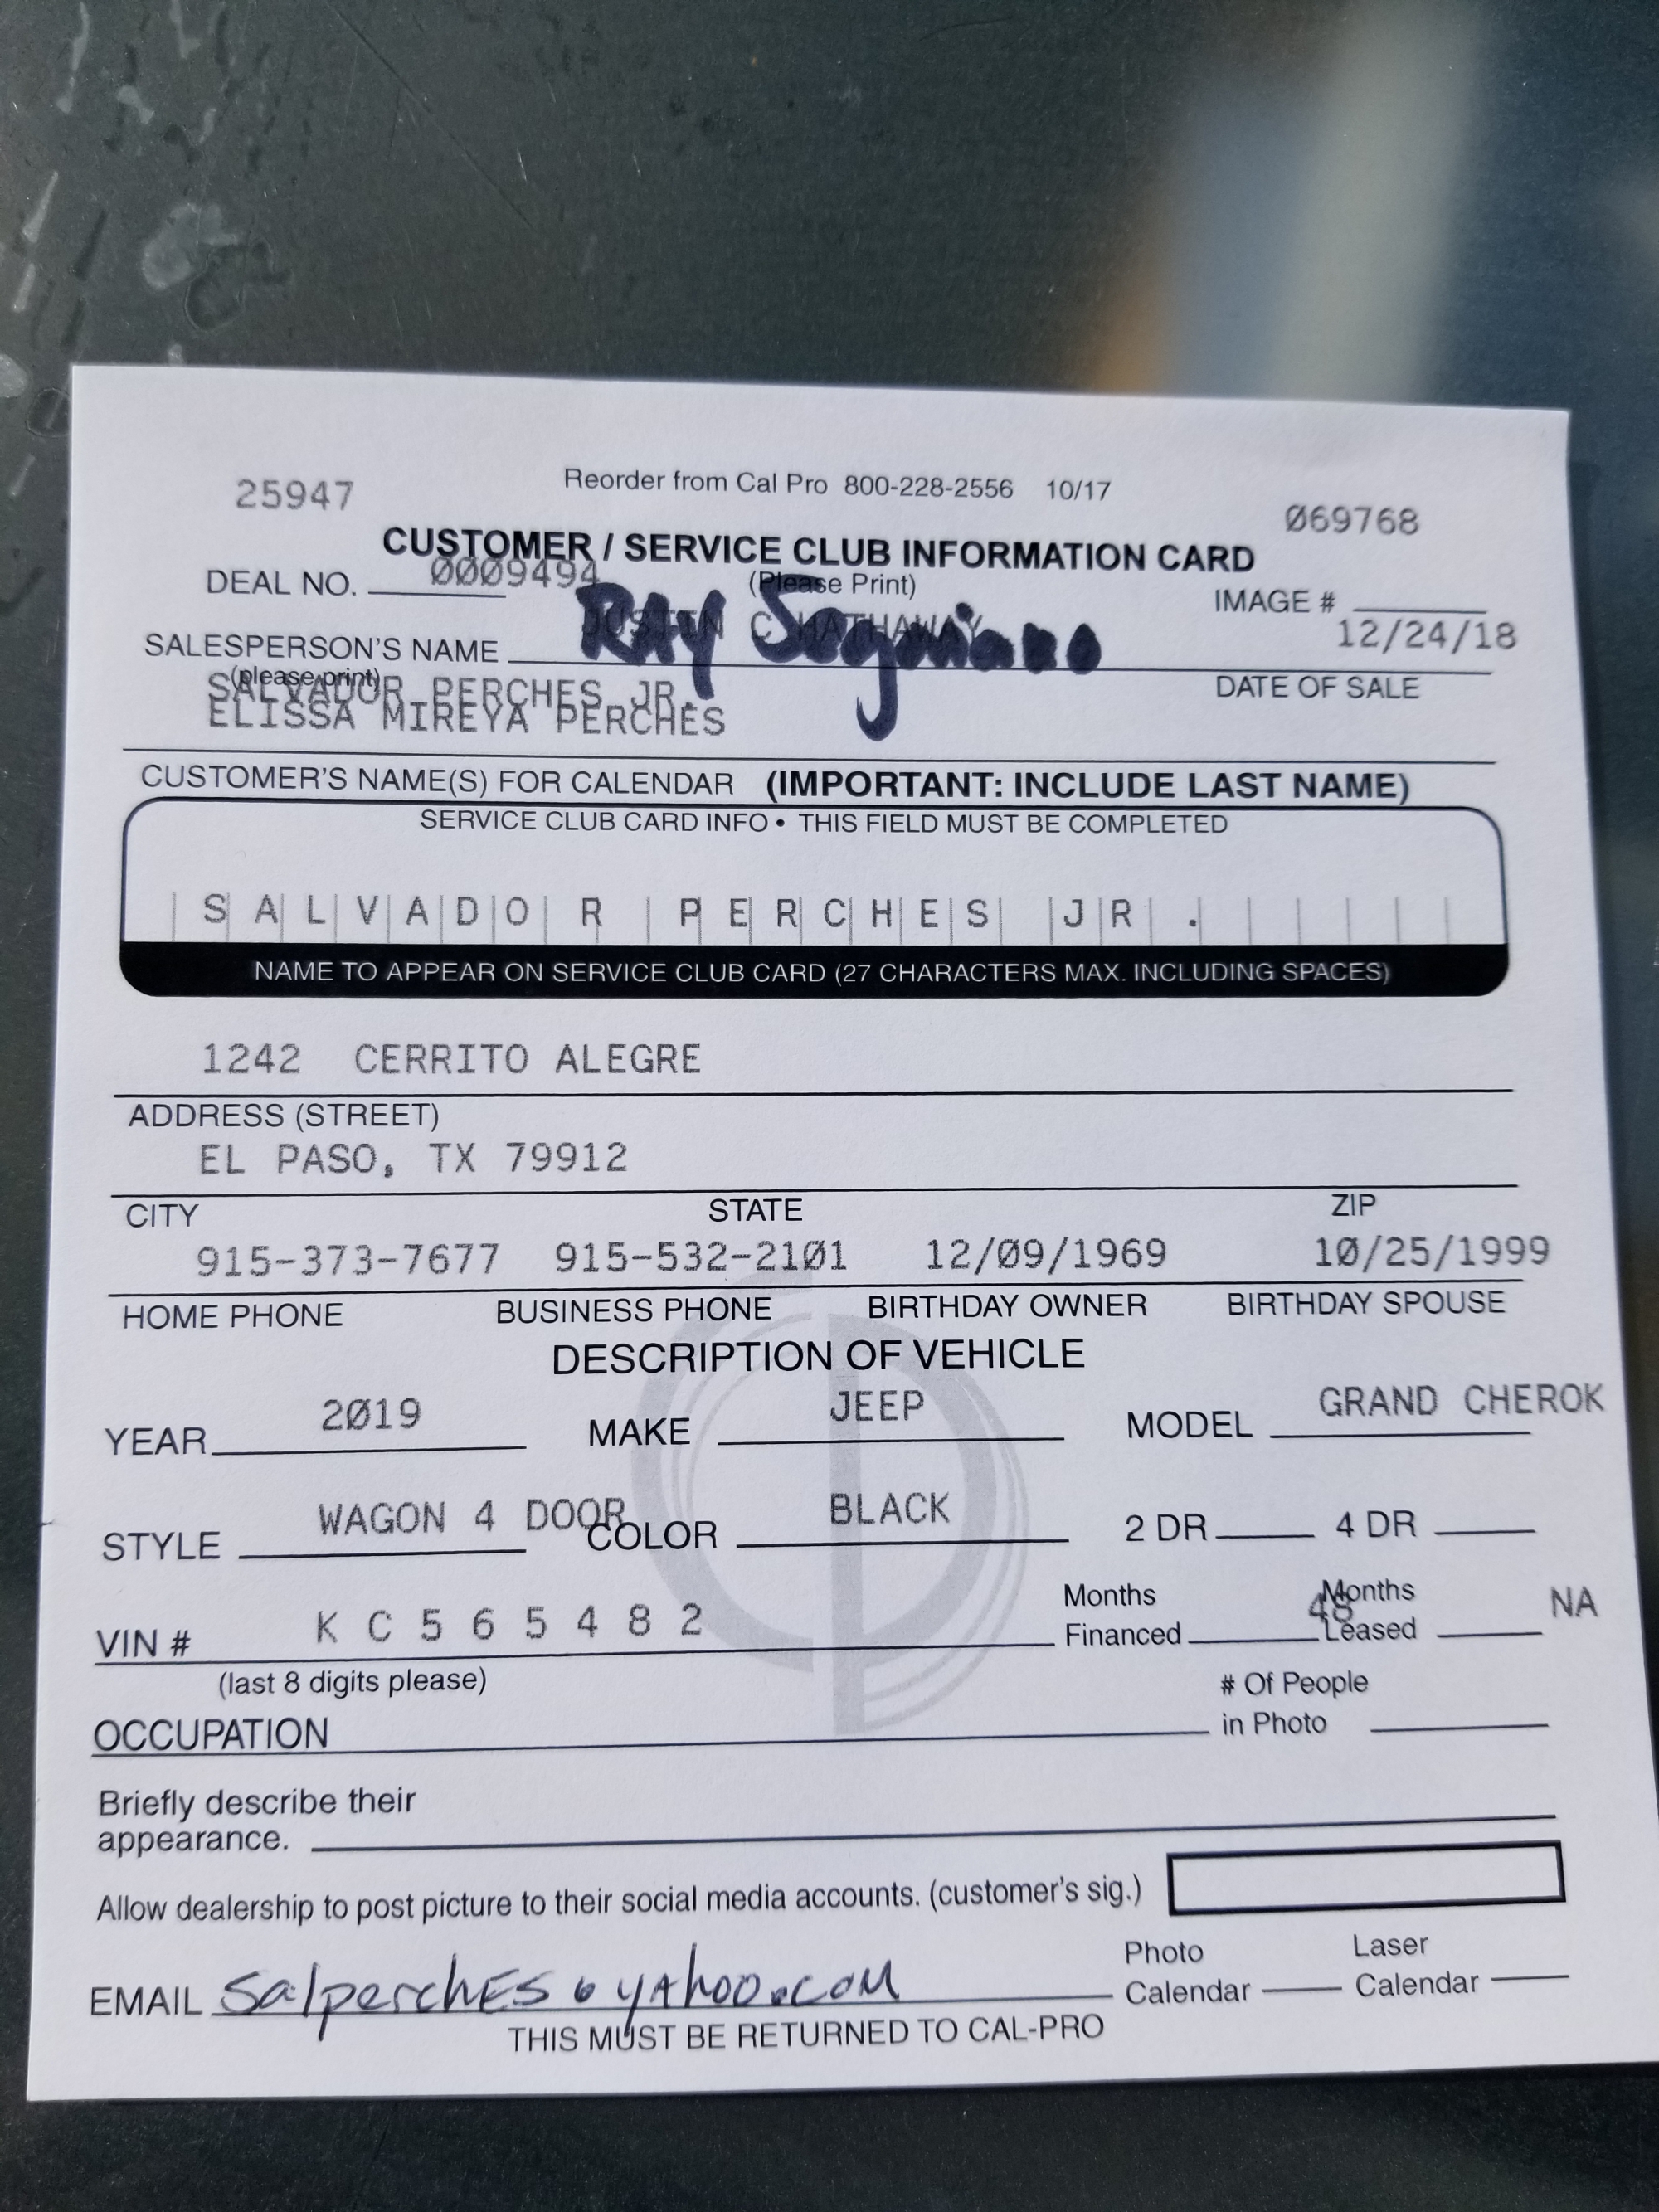 25947 Reorder from Cal Pro 800-228-2556 10/17 069768
CUSTOMER / SERVICE CLUB INFORMATION CARD
DEAL NO. 0009494 (Please Print) IMAGE #
SALESPERSON'S NAME RAY 12/24/18
(please print) DATE OF SALE
SALVADOR PERCHES JR.
ELISSA MIREYA PERCHES
CUSTOMER'S NAME(S) FOR CALENDAR (IMPORTANT: INCLUDE LAST NAME)
SERVICE CLUB CARD INFO • THIS FIELD MUST BE COMPLETED
SALVADOR PERCHES JR.
NAME TO APPEAR ON SERVICE CLUB CARD (27 CHARACTERS MAX. INCLUDING SPACES)
1242 CERRITO ALEGRE
ADDRESS (STREET)
EL PASO, TX 79912
CITY STATE ZIP
915-373-7677 915-532-2101 12/09/1969 10/25/1999
HOME PHONE BUSINESS PHONE BIRTHDAY OWNER BIRTHDAY SPOUSE
DESCRIPTION OF VEHICLE
YEAR 2019 MAKE JEEP MODEL GRAND CHEROK
STYLE WAGON 4 DOOR COLOR BLACK 2 DR 4 DR
VIN # K C 5 6 5 4 8 2 Months Financed 48 Months Leased NA
(last 8 digits please)
OCCUPATION # Of People in Photo
Briefly describe their
appearance.
Allow dealership to post picture to their social media accounts. (customer's sig.)
EMAIL salperchES@yAhoo.com Photo Calendar Laser Calendar
THIS MUST BE RETURNED TO CAL-PRO